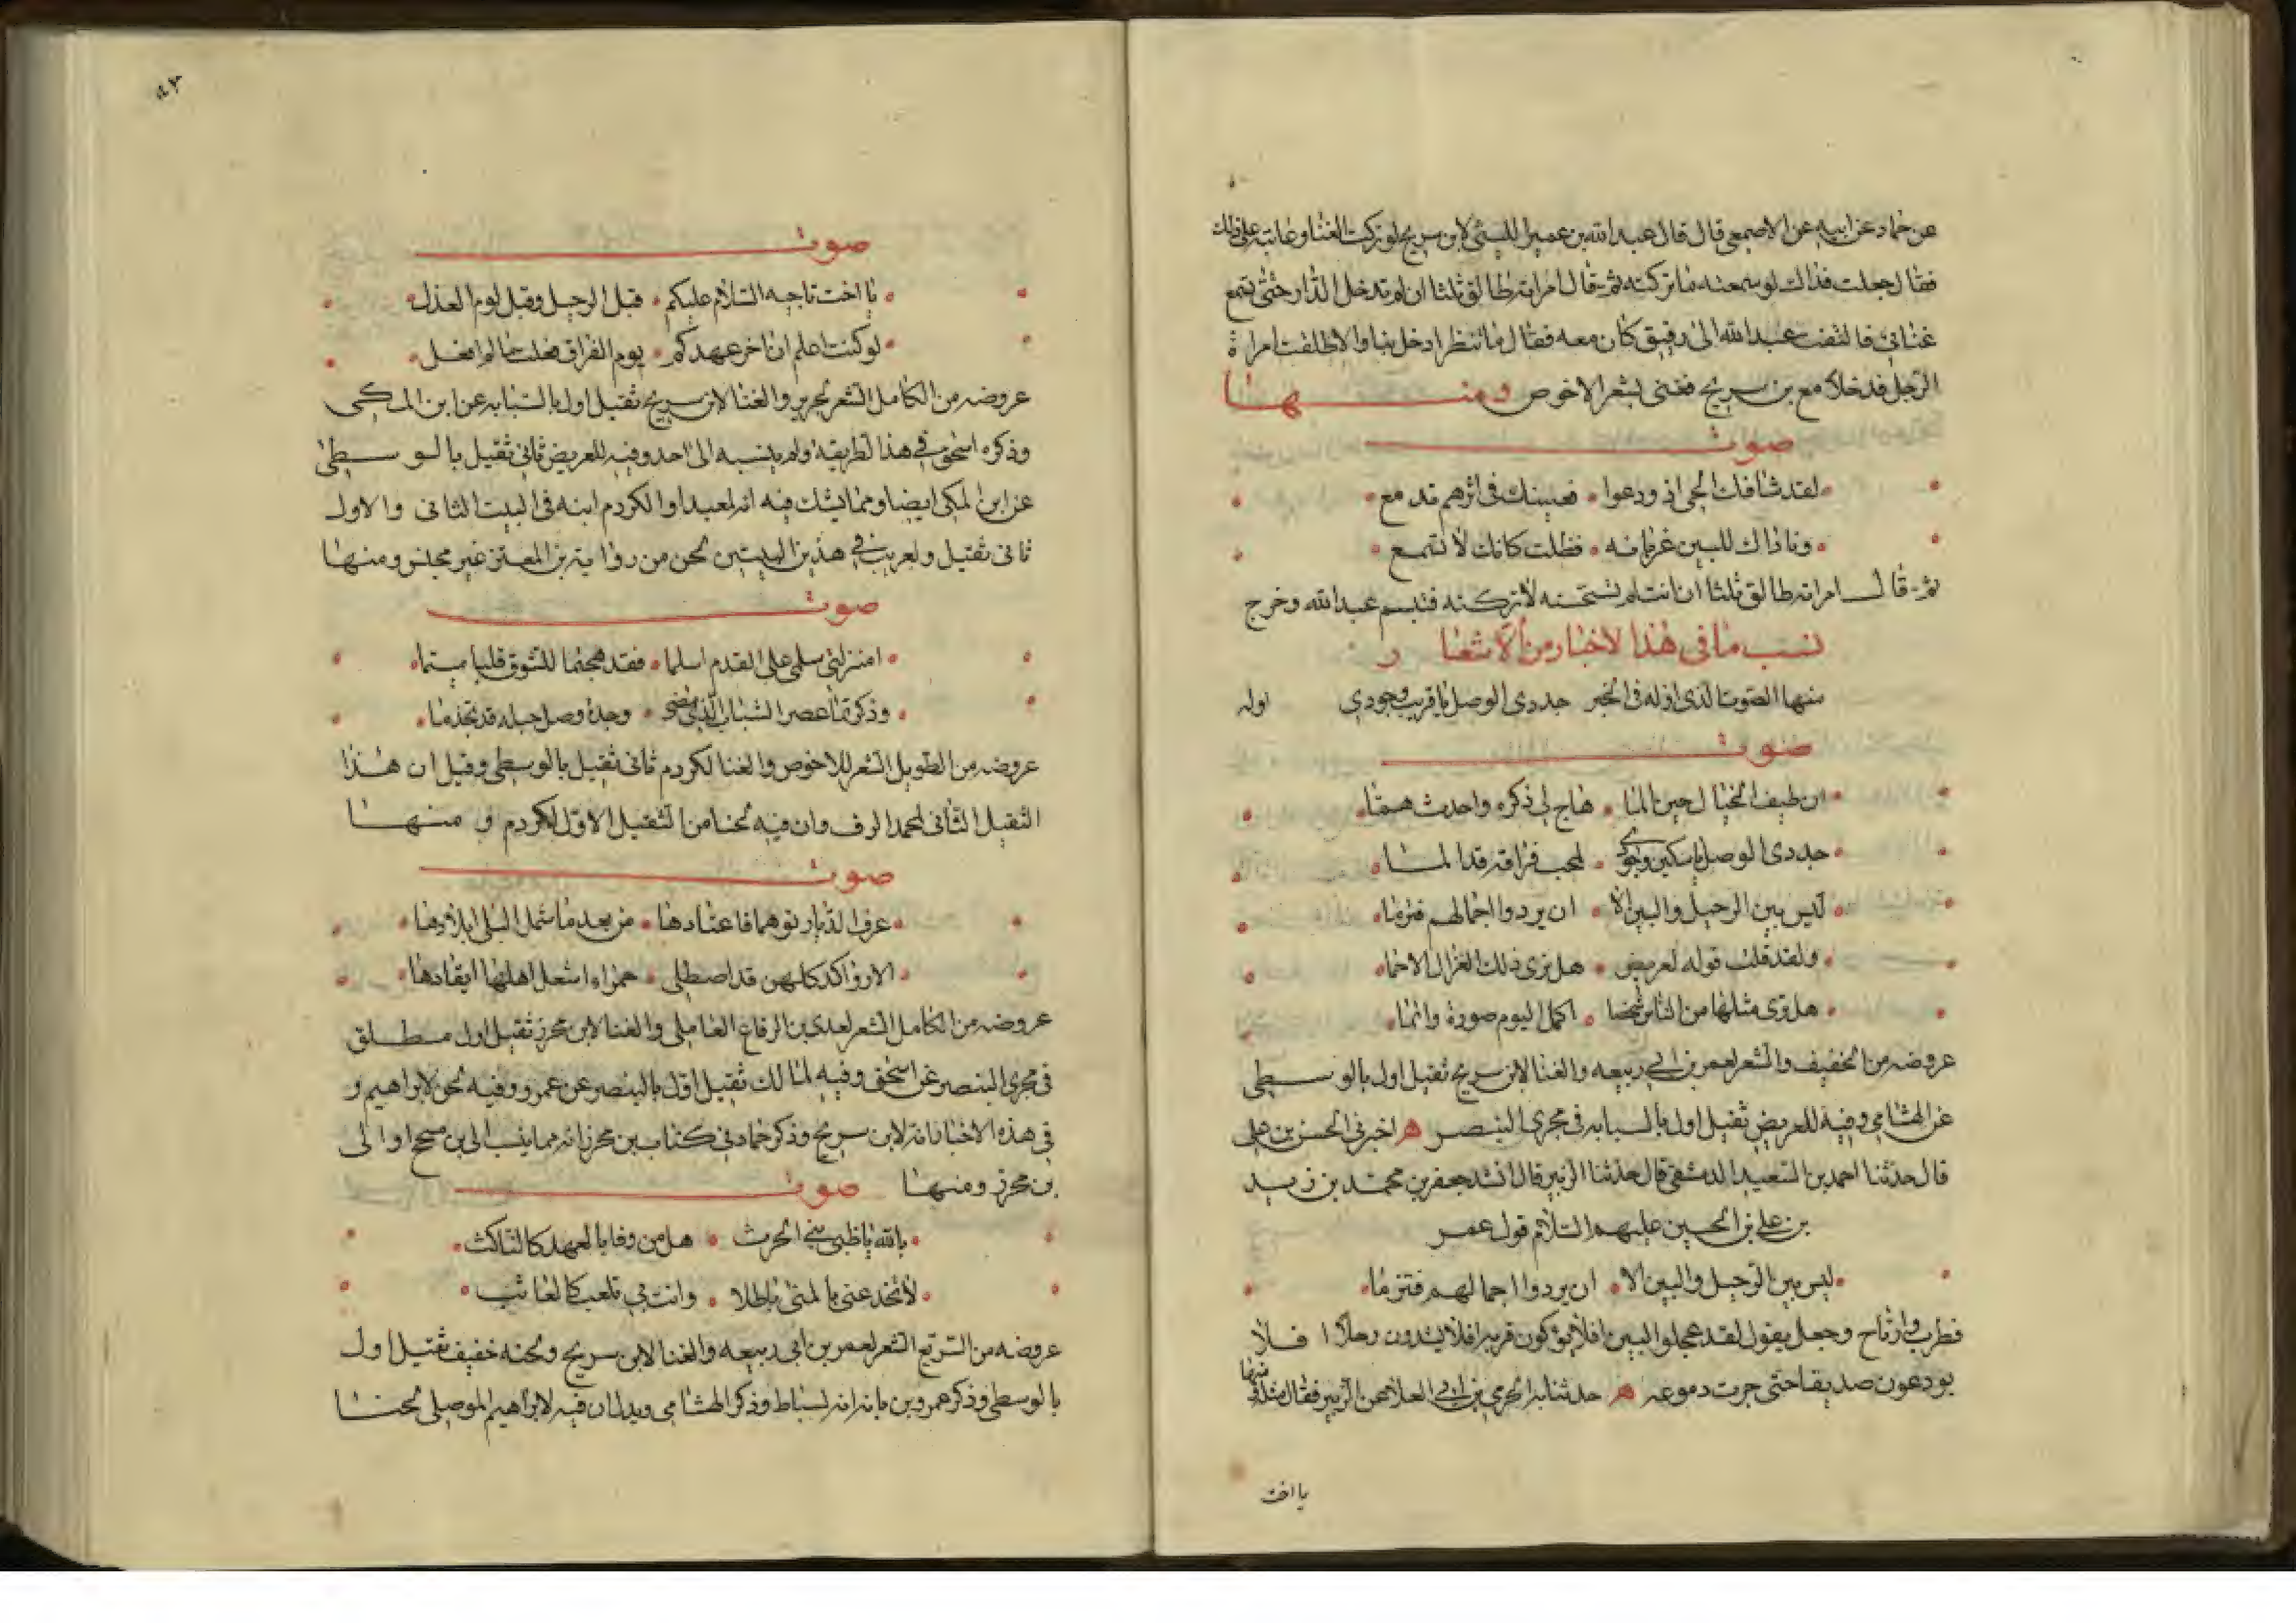 عن حماد عن ابيه عن الاصمعي قال قال عبد الله بن عمير الليثي لابن سريج لو تركت الغنا وعاتبه على ذلك
فقال جعلت فداك لو سمعته ما تركته ثم قال امراته طالق ثلثا ان لم تدخل الدار حتى تسمع
غنائي فالتفت عبد الله الى رفيق كان معه فقال ما تنتظر ادخل بنا والا طلقت امراة
الرجل فدخلا مع بن سريج فغنى بشعر الاخوص ومنها
صوت
لقد شاقك الحى اذ ودعوا فعينك في اثرهم تدمع
وناداك للبين غربانه فظلت كانك لا تسمع
ثم قال امراته طالق ثلثا ان انت لم تستحسنه لاتركنه فتبسم عبد الله وخرج
نسب ما في هذا لاخبار من الاشعار
منها الصوت الذى اوله في الخبر جددى الوصل يا قريب وجودي اوله
صوت
ان طيف الخيال حين المّا هاج لي ذكره واحدث همّا
جددى الوصل يا سكين وجودى لمحب فراقه قد المّا
ليس بين الرحيل والبين الا ان يردوا اجمالهم فتزمّا
ولقد قلت قوله لغريض هل ترى ذلك الغزال الاحما
هل ترى مثلها من الناس شخصا اكمل اليوم صورة واتمّا
عروضه من الخفيف والشعر لعمر بن ابي ربيعه والغنا لابن سريج ثقيل اول بالوسطى
عن الهشامي وفيه للغريض ثقيل اول بالسبابه في مجرى البنصر هـ اخبرني الحسن بن على
قال حدثنا احمد بن السعيد الدمشقى قال حدثنا الزبير قال انشد جعفر بن محمد بن زيد
بن علي بن الحسين عليهم السلام قول عمر
ليس بين الرحيل والبين الا ان يردوا اجمالهم فتزمّا
فطرب وارتاح وجعل يقول لقد عجلوا البين افلا يوكون قربه افلا يشدون رحلا افلا
يودعون صديقا حتى جرت دموعه هـ حدثنا به الحرمي بن ابي العلا عن الزبير فقال مثله ومنها
يا اخت
صوت
يا اخت ناجيه السلام عليكم قبل الرحيل وقبل لوم العذل
لو كنت اعلم ان اخر عهدكم يوم الفراق فعلت ما لم افعل
عروضه من الكامل الشعر لجرير والغنا لابن سريج ثقيل اول بالسبابه عن ابن المكى
وذكره اسحق في هذا لطريقه ولم ينسبه الى احد وفيه للغريض ثاني ثقيل بالوسطى
عن ابن المكى ايضا ومما يشك فيه انه لمعبد او الكردم ابنه في البيت الثاني والاول
ثاني ثقيل ولعريب في هذين البيتين لحن من رواية بن المعتز غير مجنس ومنها
صوت
امنزلتي سلمى على القدم اسلما فقد هجتما للشوق قلبا ميتما
وذكرتما عصر الشباب الذي مضى وجدة وصل حبله قد تجذما
عروضه من الطويل الشعر للاخوص والغنا لكردم ثاني ثقيل بالوسطى وقيل ان هذا
الثقيل الثاني لمحمد الرف وان فيه لحنا من الثقيل الاول لكردم و منها
صوت
عرف الديار توهما فاعتادها من بعد ما شمل البلى ابلادها
الا رواكد كلهن قد اصطلى حمراء اشعل اهلها ايقادها
عروضه من الكامل الشعر لعدى بن الرقاع العاملي والغنا لابن محرز ثقيل اول مطلق
في مجرى البنصر عن اسحق وفيه لمالك ثقيل اول بالبنصر عن عمرو وفيه لحن لابراهيم و
في هذه الاخبار انه لابن سريج وذكر حماد في كتاب بن محرز انه مما ينسب الى بن مسجح او الى
بن محرز ومنها صوت
بالله يا ظبي بني الحرث هل من وفا بالعهد كالناكث
لا تخدعني بالمنى باطلا وانت بي تلعب كالعابث
عروضه من السريع الشعر لعمر بن ابي ربيعه والغنا لابن سريج ولحنه خفيف ثقيل اول
بالوسطى وذكر عمرو بن بانه انه لسباط وذكر الهشامي وبدل ان فيه لابراهيم الموصلي لحنا